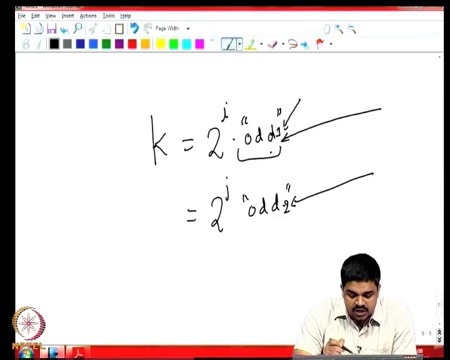 File Edit View Insert Actions Tools Help
Page Width
k = 2^i . "odd1"
= 2^j "odd2"